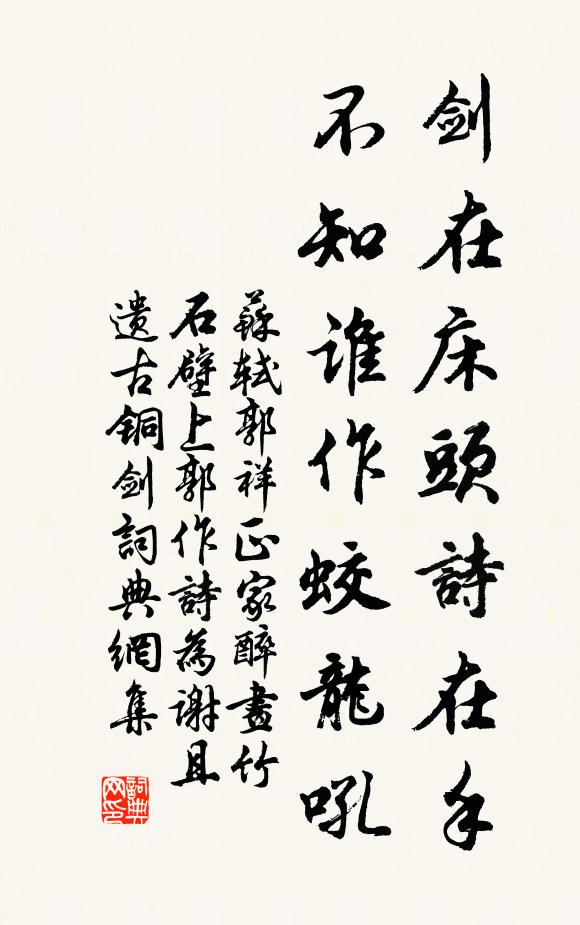 剑在床頭詩在手
不知谁作蛟龍吼
蘇軾郭祥正家醉畫竹
石壁上郭作詩為謝且
遺古銅劍詞典網集
詞典网印